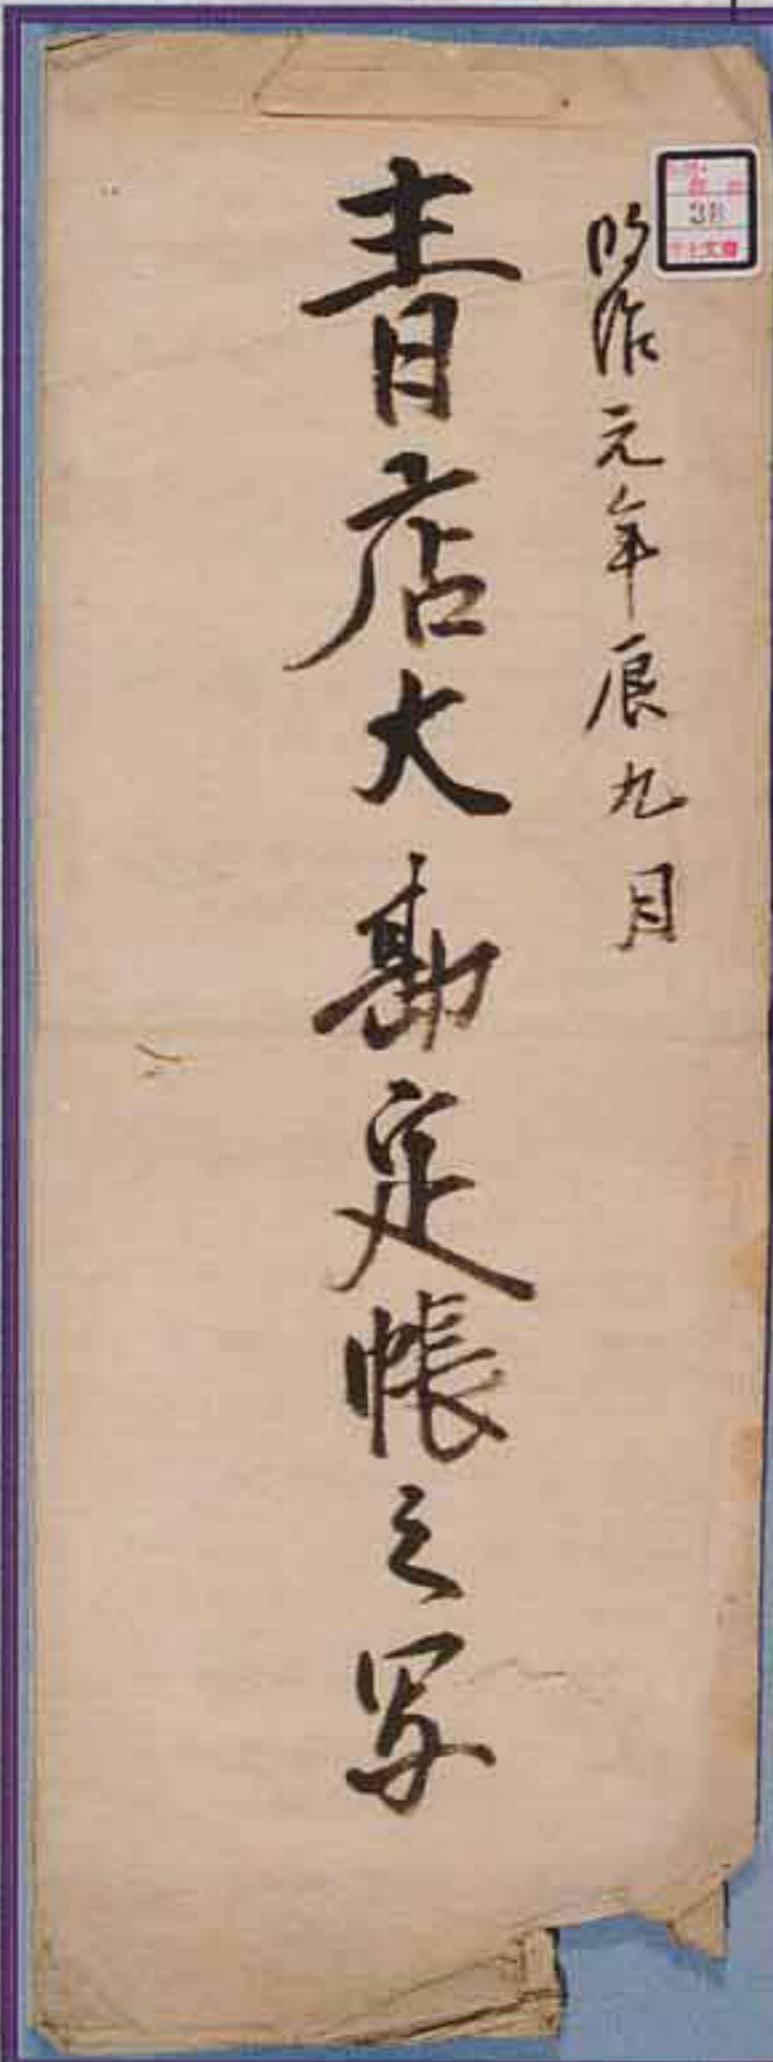 明治元年辰九月
青店大勘定帳之写
38